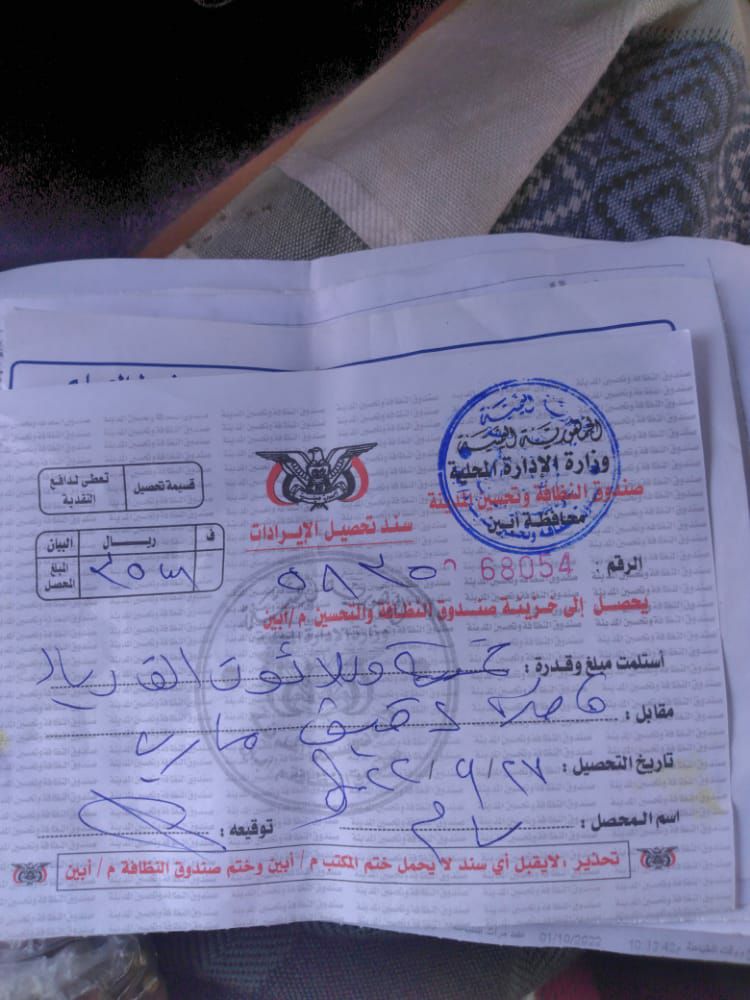 الجمهورية اليمنية
وزارة الإدارة المحلية
صندوق النظافة وتحسين المدينة
محافظة أبين
سند تحصيل الإيرادات
قسيمة تحصيل
تعطى لدافع النقدية
البيان ريال ف
المبلغ المحصل
الرقم : 68054
يحصل إلى خزينة صندوق النظافة والتحسين م/أبين
أستلمت مبلغ وقدرة : خمسة وثلاثون الف ريال
مقابل : قاطرة دقيق
تاريخ التحصيل : ٢٧/٩/٢٢
اسم المحصل :
توقيعه :
تحذير : لايقبل أي سند لا يحمل ختم المكتب م / أبين وختم صندوق النظافة م / أبين
01/10/2022